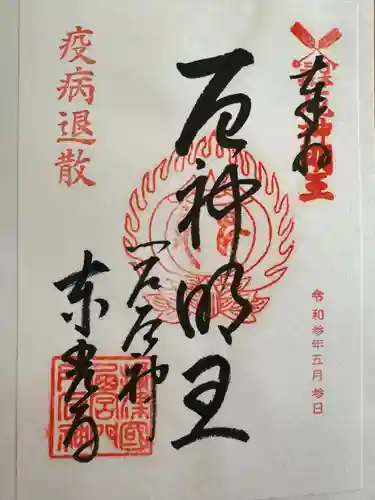 奉拝
令和参年五月参日
厄神明王
門戸厄神
東光寺
疫病退散